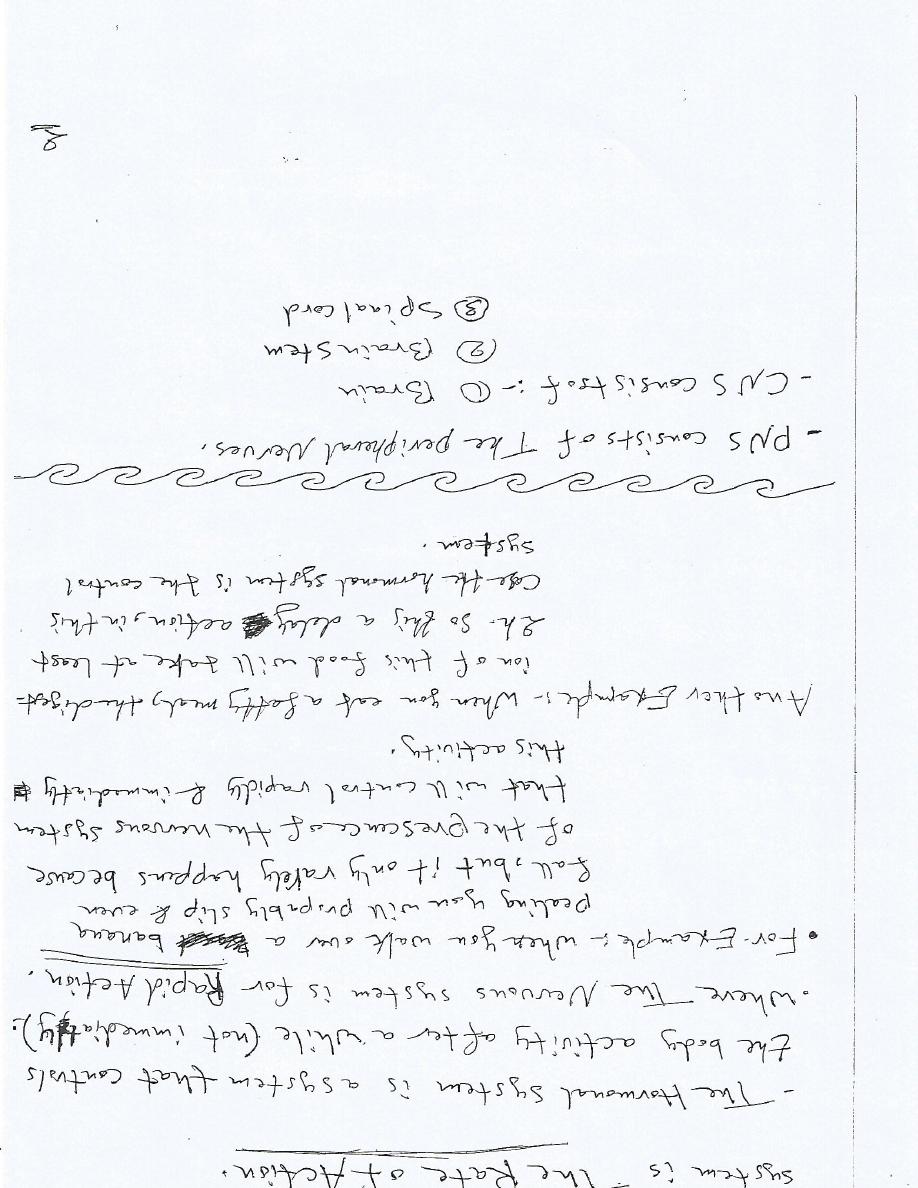 system is The Rate of Action.
- The Hormonal system is a system that controls
the body activity after a while (not immediatly):
• Where The Nervous system is for Rapid Action.
• For Example :- when you walk over a banana
pealing you will propably slip & even
fall, but it only rarely happens because
of the prescence of the nervous system
that will control rapidly & immediatly
this activity.
Another Example :- When you eat a fatty meal, the digest-
ion of this food will take at least
2h. So this a delay action, in this
case the hormonal system is the control
system.
- PNS consists of The peripheral Nerves.
- CNS consists of :- ① Brain
② Brain Stem
③ Spinal cord